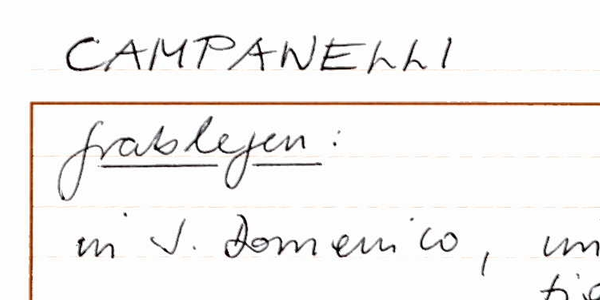 CAMPANELLI
Grablegen:
in S. Domenico,